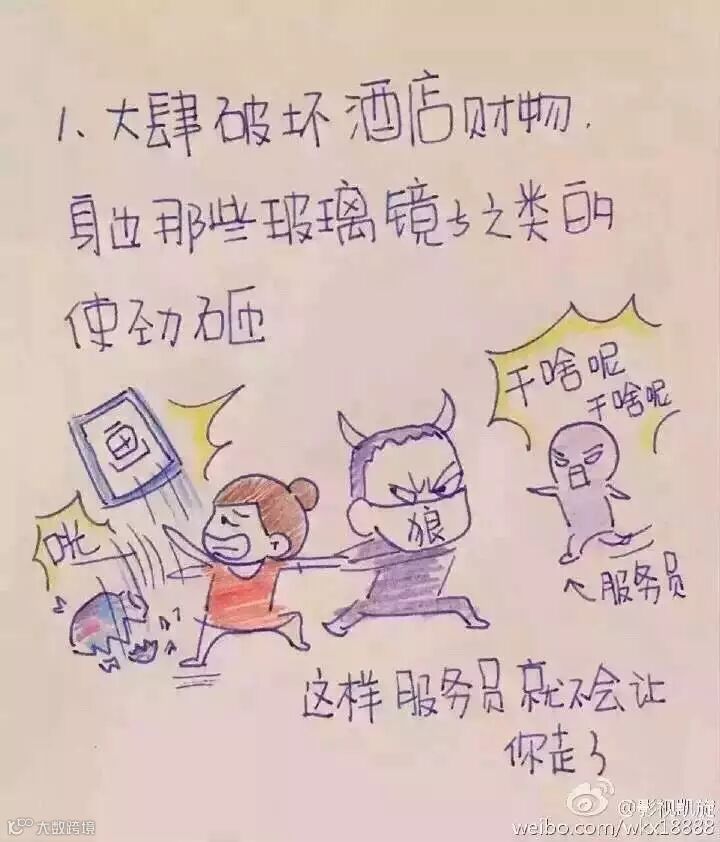 1、大肆破坏酒店财物,
身边那些玻璃镜子之类的
使劲砸
干啥呢
干啥呢
画
咣
狼
服务员
这样服务员就不会让
你走了
大数跨境
@影视凯旋
weibo.com/wkx18888